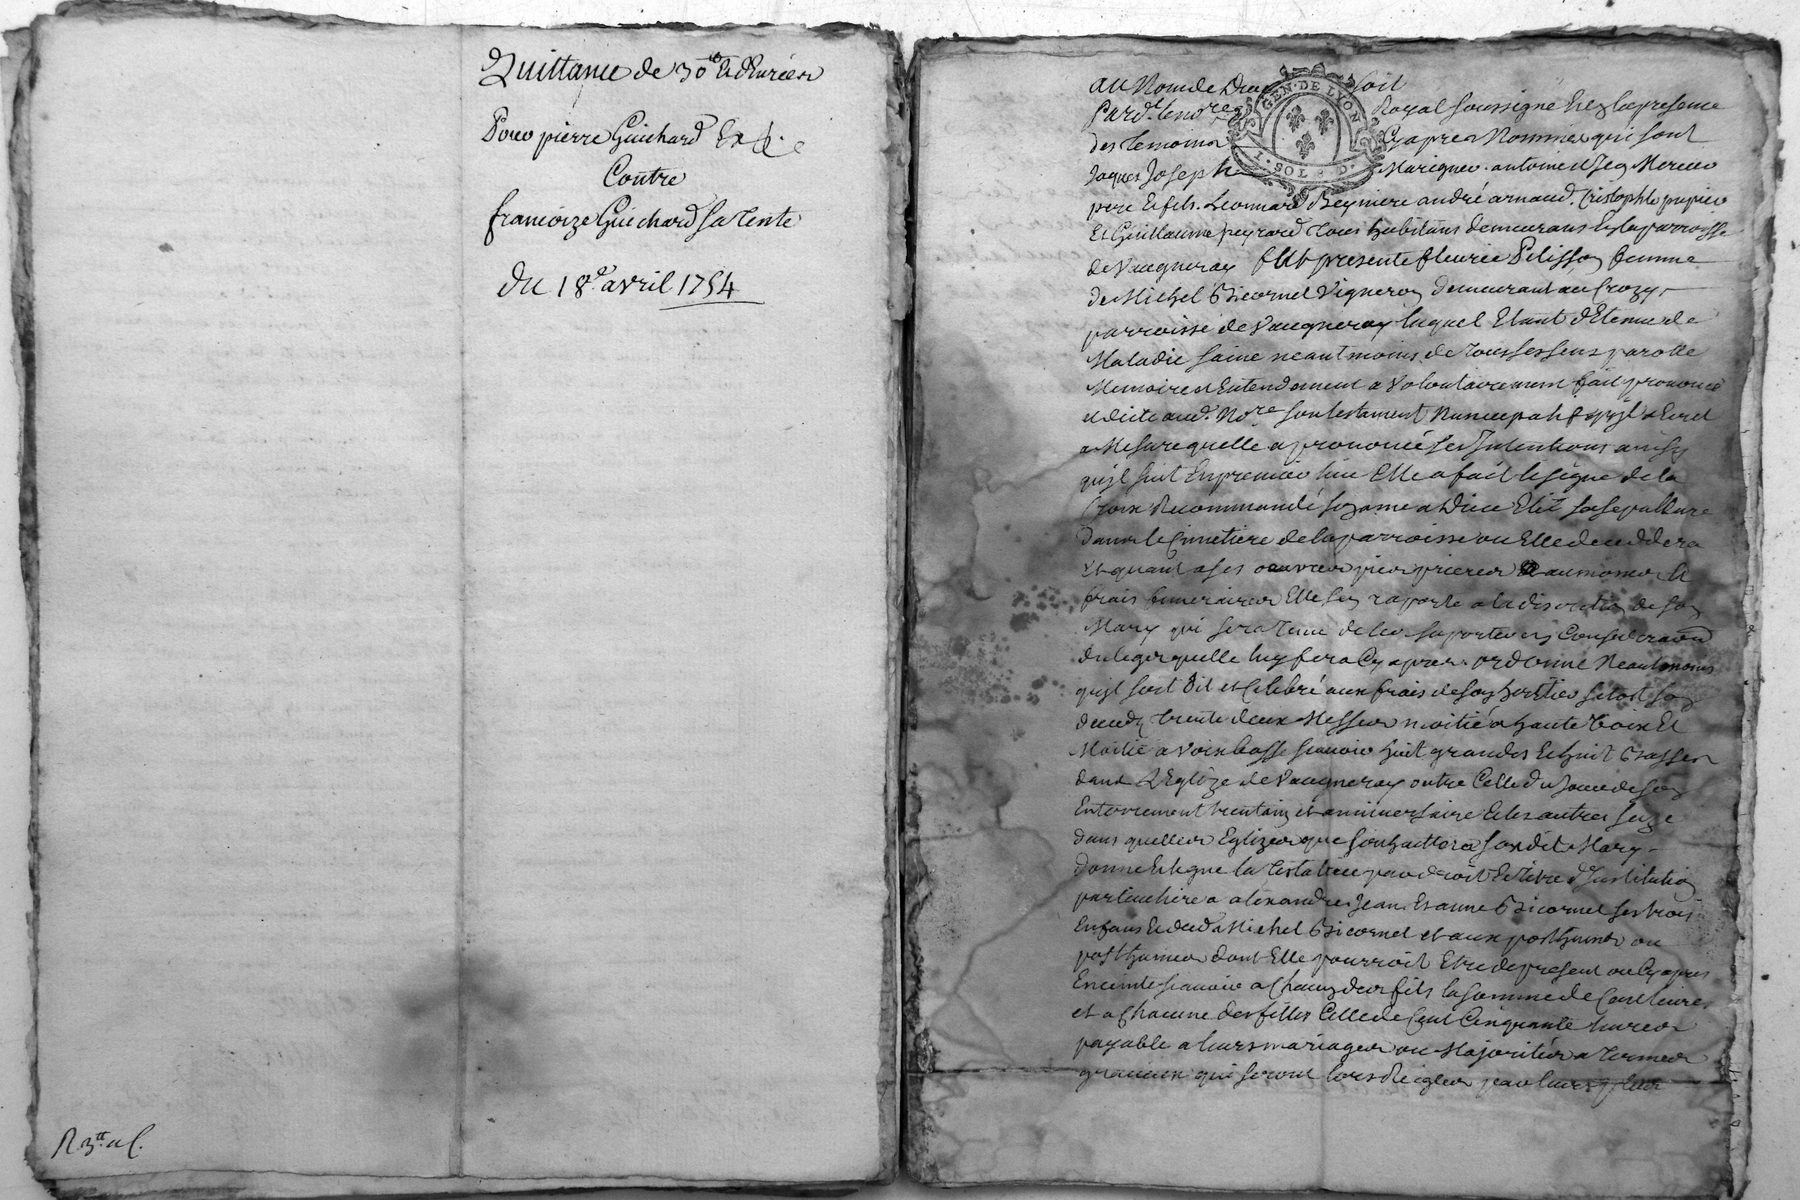 Quittance de 30 ₶ & denrées
Pour pierre Guichard
Contre
francoize Guichard sa Tente
Du 18e. avril 1754
R 3 ₶ a C.
au Nom de Dieu soit
Pard.t le no.re Royal soussigné & en la presence
des temoins Cy apres Nommés qui sont
Jaques Joseph Marignier. antoine & Mercier
pere & fils. Leonnard Beyniere andré arnaud. Cristophle
Et Guillaume peyrard tous habitans demeurans la parroisse
de Vaugneray fut presente fleurie Pelisson femme
de Michel Bicornet Vigneron demeurant au Crozy
parroisse de Vaugneray laquel Etant detenue de
Maladie saine neantmoins de tous ses sens parolle
Memoire & Entendement a Volontairement fait prononcé
et dicté aud. No.re son testament Nuncupatif & Ecrit
a Mesure quelle a prononcé ses Intentions ainsy
quil suit En premier lieu Elle a fait le signe de la
Croix Recommandé son ame a Dieu Elit sa sepulture
dans le Cimetiere de la parroisse ou Elle deceddera
Et quant a ses oeuvres pies prieres aumones &
frais funeraires Elle sen raporte a la discretion de son
Mary qui sera tenu de les suporter en Consideration
du legs quelle luy fera Cy apres. ordonne Neantmoins
quil soit dit et Celebré aux frais de son heritier sitost son
deceds trente deux Messes moitié a haute Voix Et
Moitié a Voix basse scavoir huit grandes & huit basses
dans L'Eglize de Vaugneray outre Celle du Jour de son
Enterrement trentain et anniversaire & les autres seize
dans quelles Eglizes que souhaittera son dit Mary
donne & legue la testatrice par droit & titre d'Institution
particuliere a alexandre, Jean & anne Bicornet ses trois
Enfans & dud. Michel Bicornet et aux posthumes ou
posthumes dont Elle pourroit Etre de present ou Cy apres
Enceinte scavoir a Chacun des fils la somme de Cent livres
et a Chacune des filles Celle de Cent Cinquante livres
payable a leurs mariages ou Majorités a termes
gracieux qui seront lors Reigles par leurs